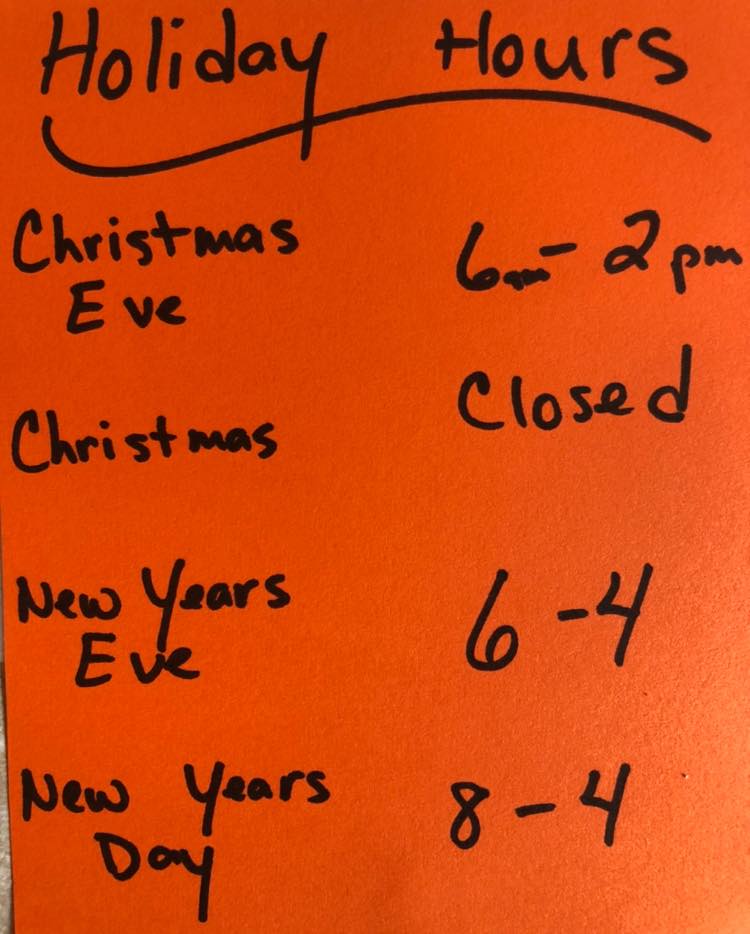 Holiday Hours
Christmas Eve 6am - 2pm
Christmas Closed
New Years Eve 6-4
New Years Day 8-4